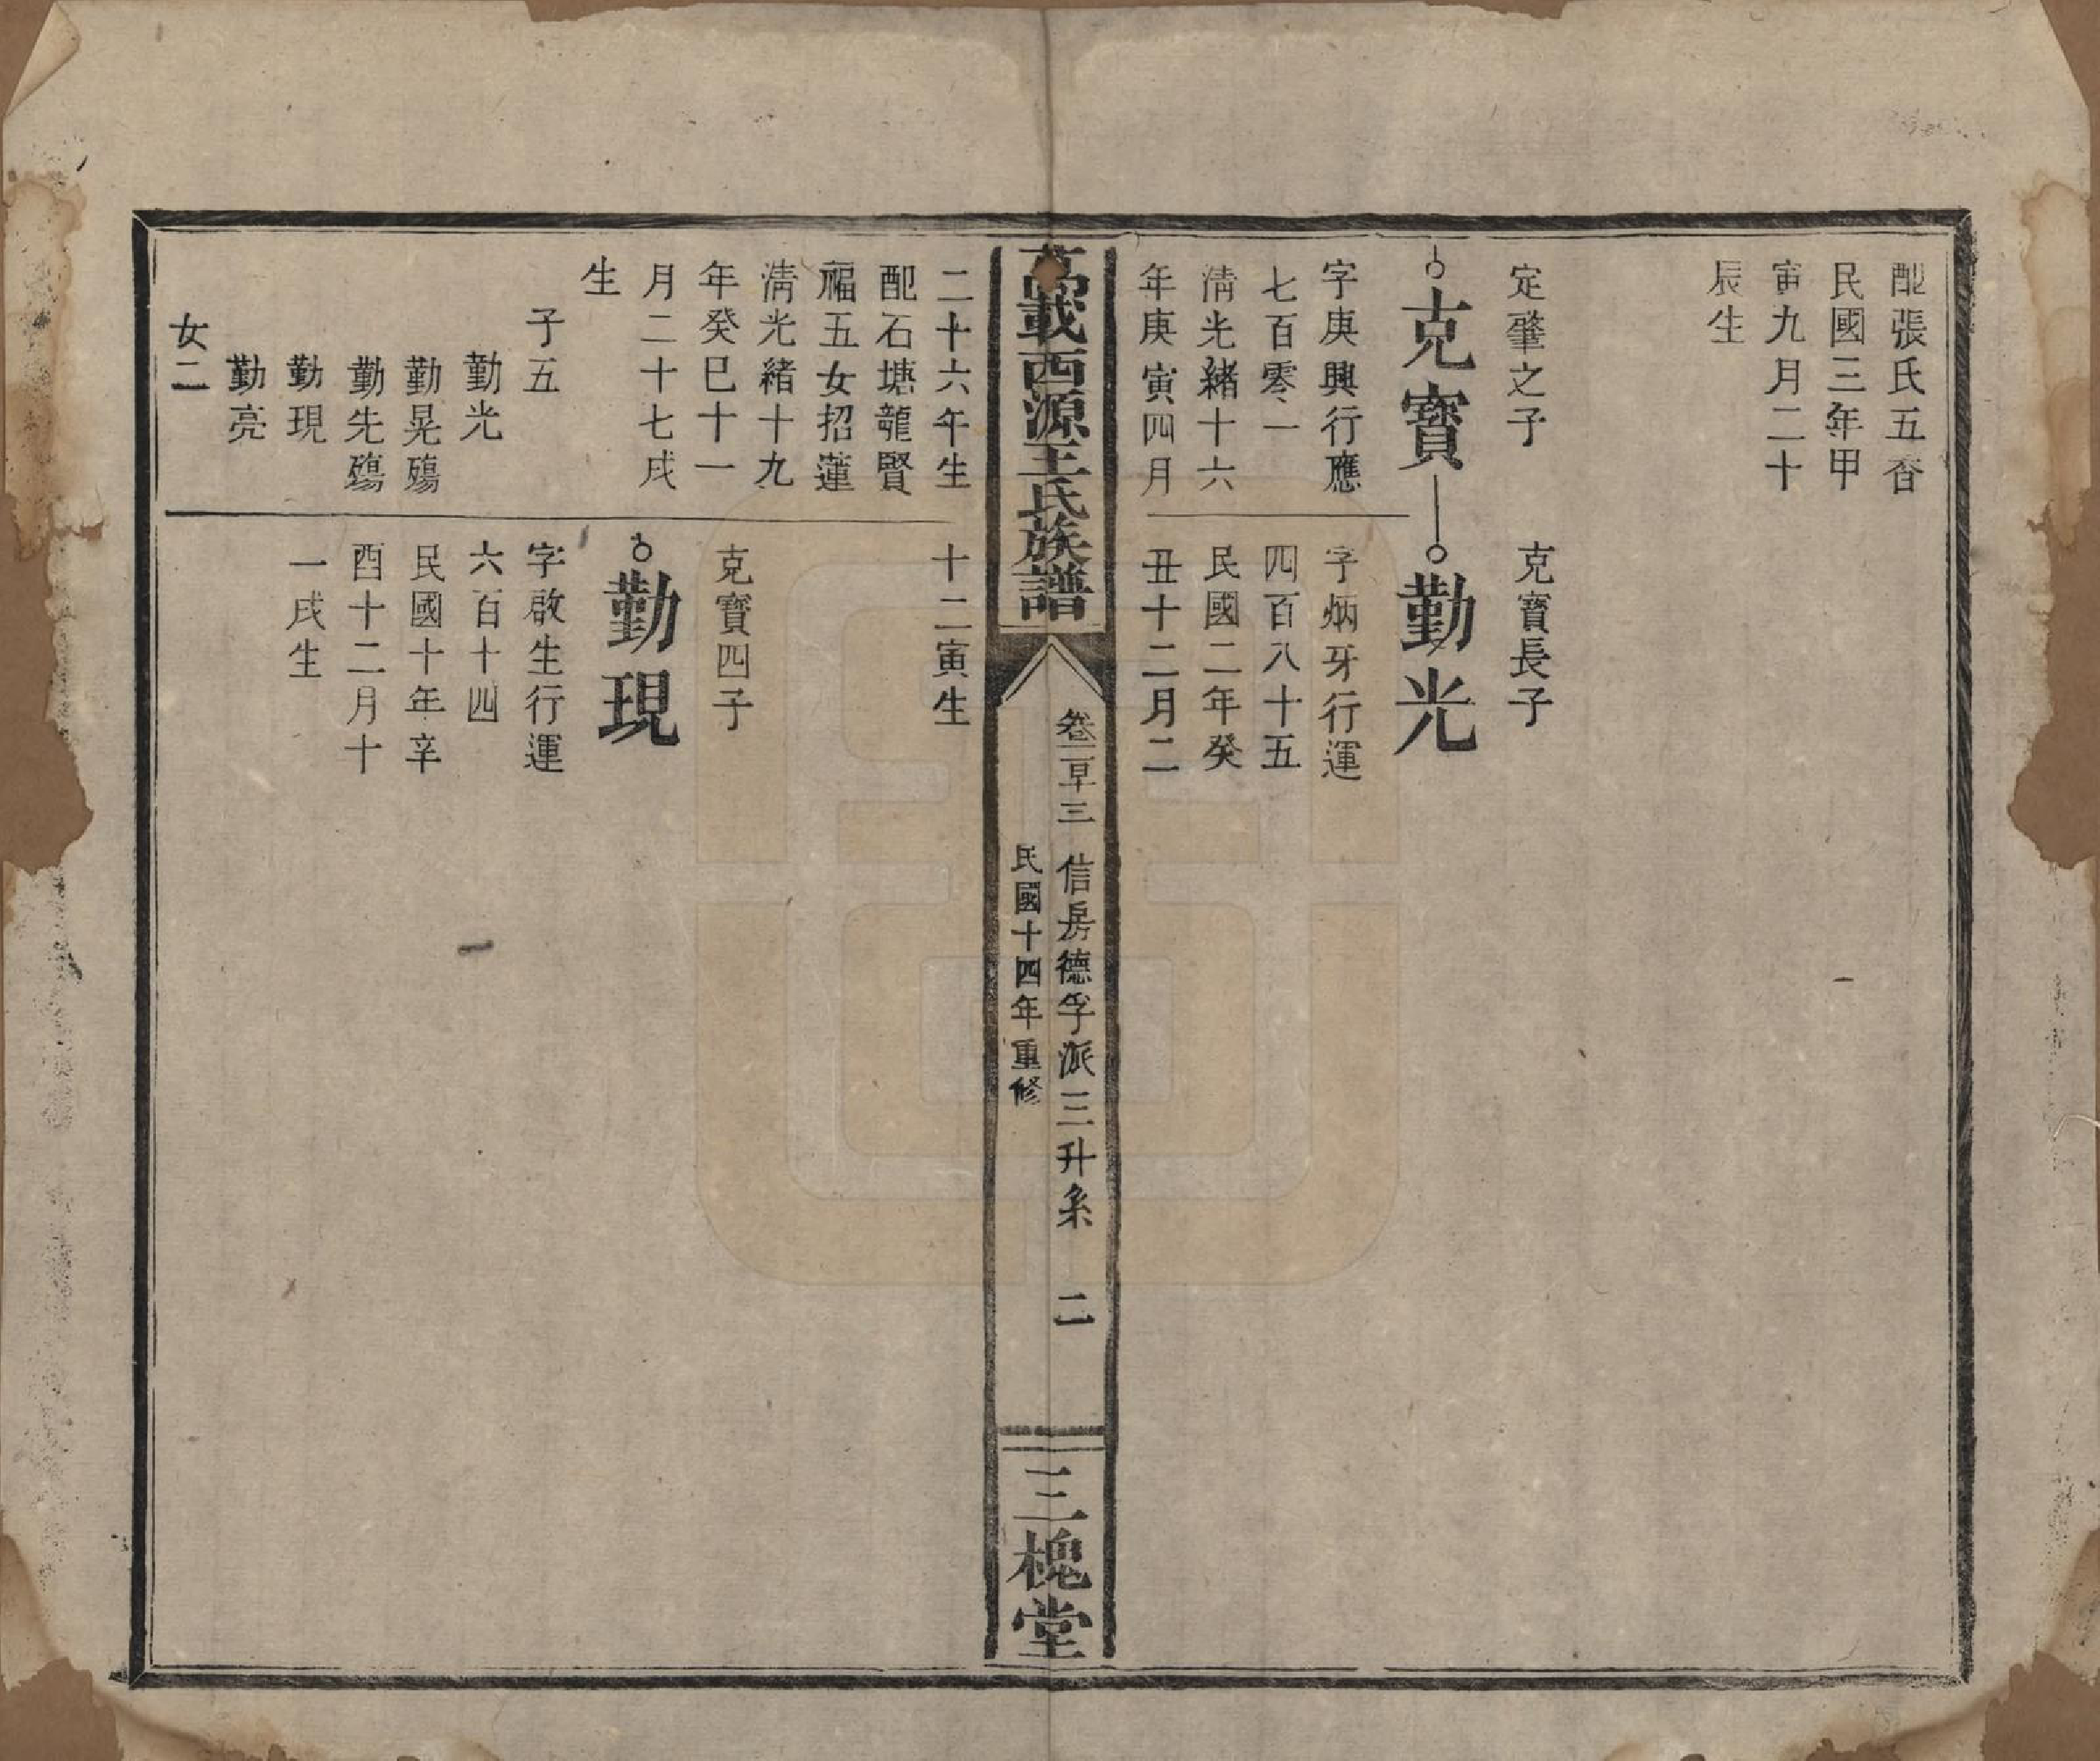 配張氏五香
民國三年甲
寅九月二十
辰生
定肇之子
克寶
字庚興行應
七百零一
淸光緒十六
年庚寅四月
克寶長子
勤光
字炳牙行運
四百八十五
民國二年癸
丑十二月二
萬載西源王氏族譜
卷二百三 信房德孚派三升系 二
民國十四年重修
三槐堂
二十六年生
配石塘龍賢
福五女招蓮
淸光緒十九
年癸巳十一
月二十七戌
生
子五
勤光
勤晃殤
勤先殤
勤現
勤亮
女二
十二寅生
克寶四子
勤現
字啟生行運
六百十四
民國十年辛
酉十二月十
一戌生